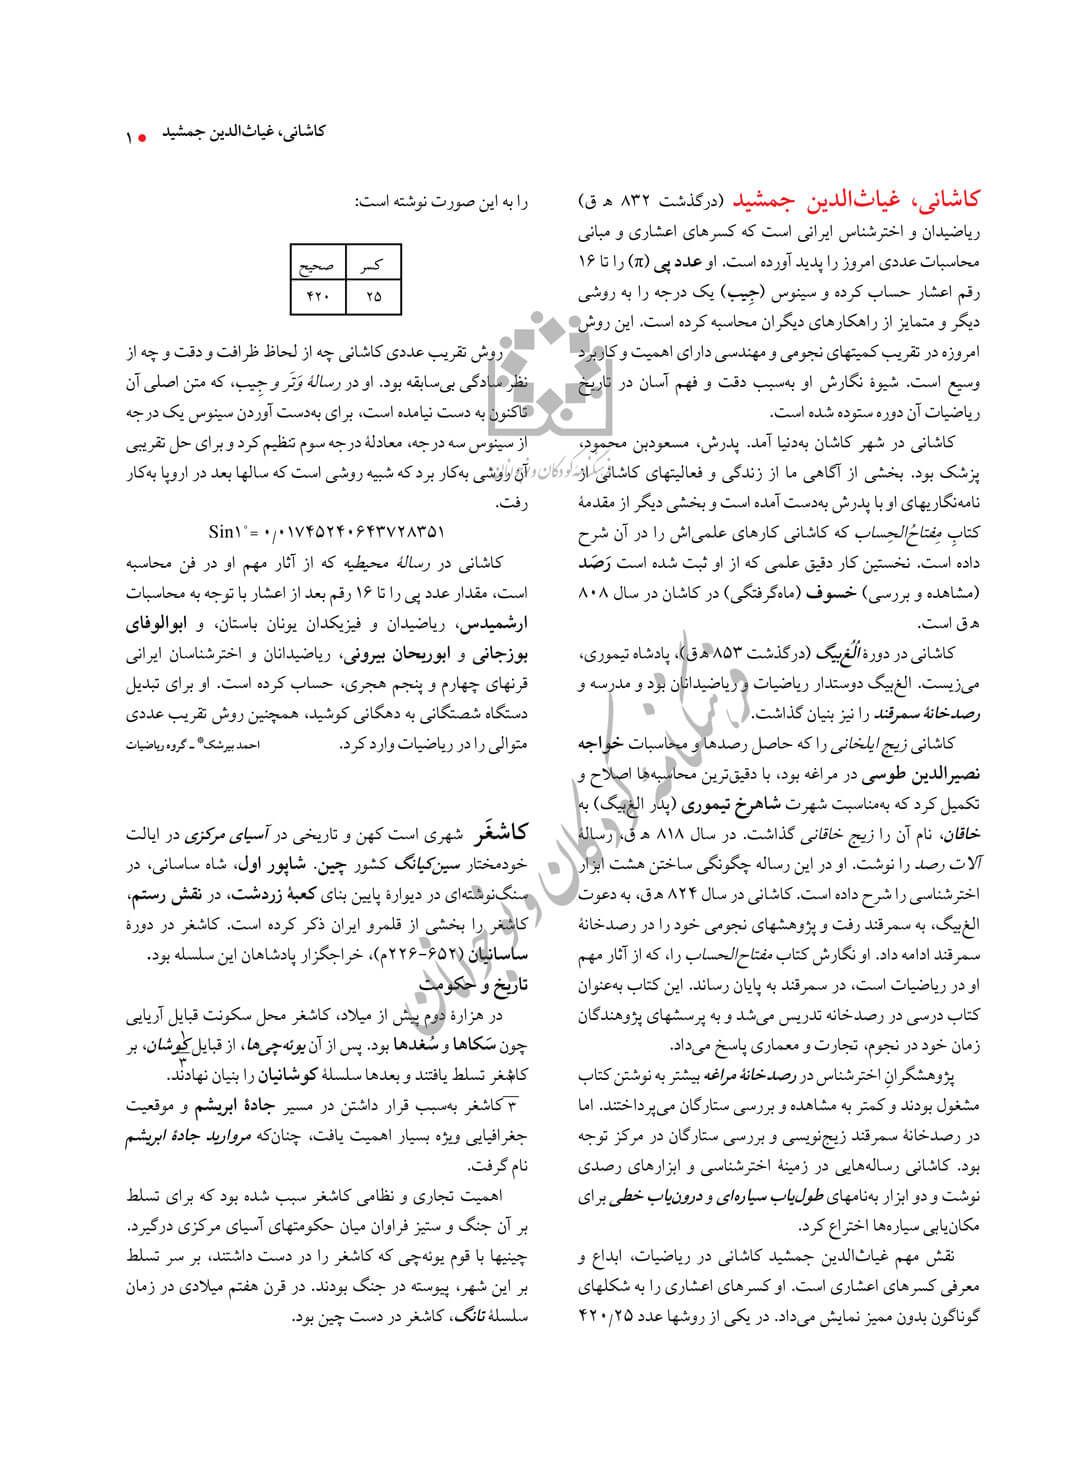 کاشانی، غیاث‌الدین جمشید • ۱
کاشانی، غیاث‌الدین جمشید (درگذشت ۸۳۲ ه‍ ق)
ریاضیدان و اخترشناس ایرانی است که کسرهای اعشاری و مبانی
محاسبات عددی امروز را پدید آورده است. او عدد پی (π) را تا ۱۶
رقم اعشار حساب کرده و سینوس (جِیب) یک درجه را به روشی
دیگر و متمایز از راهکارهای دیگران محاسبه کرده است. این روش
امروزه در تقریب کمیتهای نجومی و مهندسی دارای اهمیت و کاربرد
وسیع است. شیوۀ نگارش او به‌سبب دقت و فهم آسان در تاریخ
ریاضیات آن دوره ستوده شده است.
کاشانی در شهر کاشان به‌دنیا آمد. پدرش، مسعودبن محمود،
پزشک بود. بخشی از آگاهی ما از زندگی و فعالیتهای کاشانی از
نامه‌نگاریهای او با پدرش به‌دست آمده است و بخشی دیگر از مقدمۀ
کتابِ مِفتاحُ‌الحِساب که کاشانی کارهای علمی‌اش را در آن شرح
داده است. نخستین کار دقیق علمی که از او ثبت شده است رَصَد
(مشاهده و بررسی) خسوف (ماه‌گرفتگی) در کاشان در سال ۸۰۸
ه‍ ق است.
کاشانی در دورۀ اُلُغ‌بیگ (درگذشت ۸۵۳ ه‍ ق)، پادشاه تیموری،
می‌زیست. الغ‌بیگ دوستدار ریاضیات و ریاضیدانان بود و مدرسه و
رصدخانۀ سمرقند را نیز بنیان گذاشت.
کاشانی زیج ایلخانی را که حاصل رصدها و محاسبات خواجه
نصیرالدین طوسی در مراغه بود، با دقیق‌ترین محاسبه‌ها اصلاح و
تکمیل کرد که به‌مناسبت شهرت شاهرخ تیموری (پدر الغ‌بیگ) به
خاقان، نام آن را زیج خاقانی گذاشت. در سال ۸۱۸ ه‍ ق، رسالۀ
آلات رصد را نوشت. او در این رساله چگونگی ساختن هشت ابزار
اخترشناسی را شرح داده است. کاشانی در سال ۸۲۴ ه‍ ق، به دعوت
الغ‌بیگ، به سمرقند رفت و پژوهشهای نجومی خود را در رصدخانۀ
سمرقند ادامه داد. او نگارش کتاب مفتاح‌الحساب را، که از آثار مهم
او در ریاضیات است، در سمرقند به پایان رساند. این کتاب به‌عنوان
کتاب درسی در رصدخانه تدریس می‌شد و به پرسشهای پژوهندگان
زمان خود در نجوم، تجارت و معماری پاسخ می‌داد.
پژوهشگرانِ اخترشناس در رصدخانۀ مراغه بیشتر به نوشتن کتاب
مشغول بودند و کمتر به مشاهده و بررسی ستارگان می‌پرداختند. اما
در رصدخانۀ سمرقند زیج‌نویسی و بررسی ستارگان در مرکز توجه
بود. کاشانی رساله‌هایی در زمینۀ اخترشناسی و ابزارهای رصدی
نوشت و دو ابزار به‌نامهای طول‌یاب سیاره‌ای و درون‌یاب خطی برای
مکان‌یابی سیاره‌ها اختراع کرد.
نقش مهم غیاث‌الدین جمشید کاشانی در ریاضیات، ابداع و
معرفی کسرهای اعشاری است. او کسرهای اعشاری را به شکلهای
گوناگون بدون ممیز نمایش می‌داد. در یکی از روشها عدد ۴۲۰/۲۵
را به این صورت نوشته است:
صحیح کسر
۴۲۰ ۲۵
روش تقریب عددی کاشانی چه از لحاظ ظرافت و دقت و چه از
نظر سادگی بی‌سابقه بود. او در رسالۀ وَتَر و جِیب، که متن اصلی آن
تاکنون به دست نیامده است، برای به‌دست آوردن سینوس یک درجه
از سینوس سه درجه، معادلۀ درجه سوم تنظیم کرد و برای حل تقریبی
آن روشی به‌کار برد که شبیه روشی است که سالها بعد در اروپا به‌کار
رفت.
Sin۱°= ۰/۰۱۷۴۵۲۴۰۶۴۳۷۲۸۳۵۱
کاشانی در رسالۀ محیطیه که از آثار مهم او در فن محاسبه
است، مقدار عدد پی را تا ۱۶ رقم بعد از اعشار با توجه به محاسبات
ارشمیدس، ریاضیدان و فیزیکدان یونان باستان، و ابوالوفای
بوزجانی و ابوریحان بیرونی، ریاضیدانان و اخترشناسان ایرانی
قرنهای چهارم و پنجم هجری، حساب کرده است. او برای تبدیل
دستگاه شصتگانی به دهگانی کوشید، همچنین روش تقریب عددی
متوالی را در ریاضیات وارد کرد. احمد بیرشک* ـ گروه ریاضیات
کاشغَر شهری است کهن و تاریخی در آسیای مرکزی در ایالت
خودمختار سین‌کیانگ کشور چین. شاپور اول، شاه ساسانی، در
سنگ‌نوشته‌ای در دیوارۀ پایین بنای کعبۀ زردشت، در نقش رستم،
کاشغر را بخشی از قلمرو ایران ذکر کرده است. کاشغر در دورۀ
ساسانیان (۶۵۲-۲۲۶م)، خراجگزار پادشاهان این سلسله بود.
تاریخ و حکومت
در هزارۀ دوم پیش از میلاد، کاشغر محل سکونت قبایل آریایی
چون سَکاها و سُغدها بود. پس از آن یوئه‌چی‌ها، از قبایل کوشان، بر
کاشغر تسلط یافتند و بعدها سلسلۀ کوشانیان را بنیان نهادند.
کاشغر به‌سبب قرار داشتن در مسیر جادۀ ابریشم و موقعیت
جغرافیایی ویژه بسیار اهمیت یافت، چنان‌که مروارید جادۀ ابریشم
نام گرفت.
اهمیت تجاری و نظامی کاشغر سبب شده بود که برای تسلط
بر آن جنگ و ستیز فراوان میان حکومتهای آسیای مرکزی درگیرد.
چینیها با قوم یوئه‌چی که کاشغر را در دست داشتند، بر سر تسلط
بر این شهر، پیوسته در جنگ بودند. در قرن هفتم میلادی در زمان
سلسلۀ تانگ، کاشغر در دست چین بود.
فرهنگنامه کودکان و نوجوانان